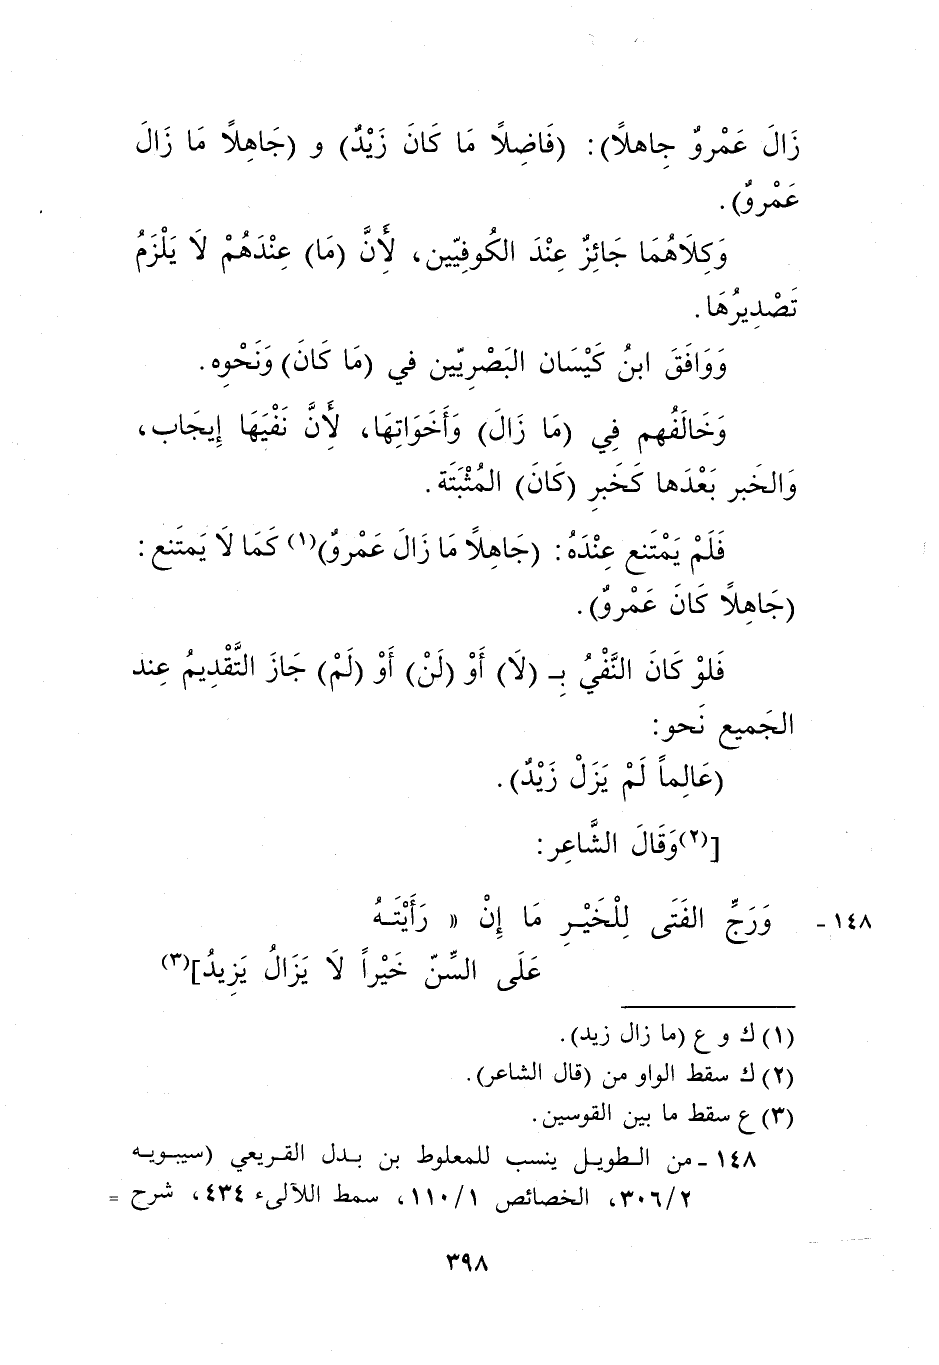 زَالَ عَمْروٌ جاهلاً): (فَاضِلًا مَا كَانَ زَيْدٌ) و (جَاهِلاً مَا زَالَ
عَمْروٌ).
وَكِلَاهُمَا جَائِزٌ عِنْدَ الكُوفِيّين، لِأَنَّ (مَا) عِنْدَهُمْ لَا يَلْزَمُ
تَصْدِيرُهَا.
وَوَافَقَ ابنُ كَيْسَان البَصْرِيّين في (مَا كَانَ) وَنَحْوِه.
وَخَالَفُهم فِي (مَا زَالَ) وَأَخَوَاتِهَا، لِأَنَّ نَفْيَهَا إِيجَاب،
وَالخَبر بَعْدَها كَخَبرِ (كَانَ) المُثْبَتَة.
فَلَمْ يَمْتَنع عِنْدَهُ: (جَاهِلًا مَا زَالَ عَمْروٌ)(١) كَمَا لَا يَمتَنع:
(جَاهِلًا كَانَ عَمْروٌ).
فَلوْ كَانَ النَّفْيُ بِـ (لَا) أَوْ (لَنْ) أَوْ (لَمْ) جَازَ التَّقْدِيمُ عِند
الجَميع نَحو:
(عَالِماً لَمْ يَزَلْ زَيْدٌ).
[(٢)وَقَالَ الشَّاعِر:
١٤٨ - وَرَجِّ الفَتَى لِلْخَيْـرِ مَا إِنْ « رَأَيْتَـهُ
عَلَى السِّنّ خَيْراً لَا يَزَالُ يَزِيدُ](٣)
(١) ك و ع (ما زال زيد).
(٢) ك سقط الواو من (قال الشاعر).
(٣) ع سقط ما بين القوسين.
١٤٨ - من الطويل ينسب للمعلوط بن بدل القريعي (سيبويه
٣٠٦/٢، الخصائص ١١٠/١، سمط اللآلىء ٤٣٤، شرح =
٣٩٨